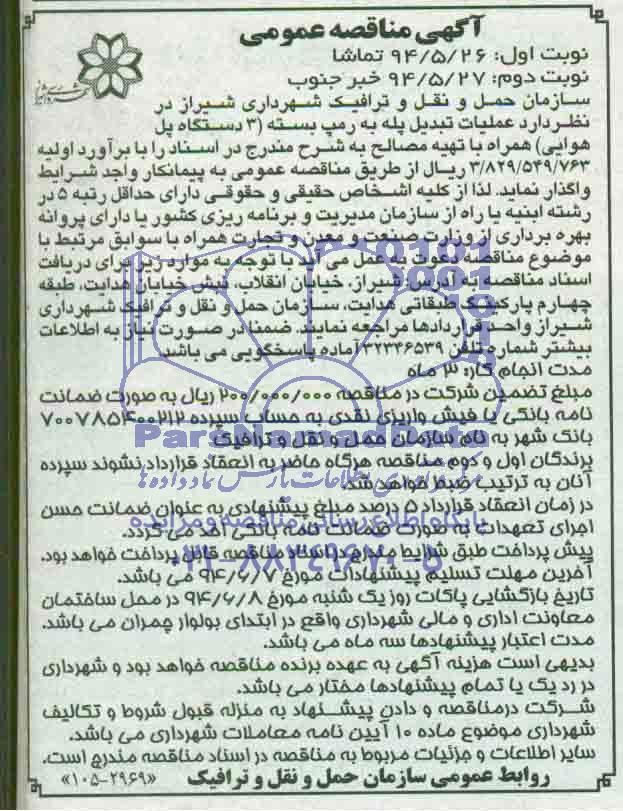 آگهی مناقصه عمومی
نوبت اول: ۹۴/۵/۲۶ تماشا
نوبت دوم: ۹۴/۵/۲۷ خبر جنوب
سازمان حمل و نقل و ترافیک شهرداری شیراز در
نظر دارد عملیات تبدیل پله به رمپ بسته (۳ دستگاه پل
هوایی) همراه با تهیه مصالح به شرح مندرج در اسناد را با برآورد اولیه
۳/۸۲۹/۵۴۹/۷۶۳ ریال از طریق مناقصه عمومی به پیمانکار واجد شرایط
واگذار نماید. لذا از کلیه اشخاص حقیقی و حقوقی دارای حداقل رتبه ۵ در
رشته ابنیه یا راه از سازمان مدیریت و برنامه ریزی کشور یا دارای پروانه
بهره برداری از وزارت صنعت و معدن و تجارت همراه با سوابق مرتبط با
موضوع مناقصه دعوت به عمل می آید با توجه به موارد زیر برای دریافت
اسناد مناقصه به آدرس: شیراز، خیابان انقلاب، نبش خیابان هدایت، طبقه
چهارم پارکینگ طبقاتی هدایت، سازمان حمل و نقل و ترافیک شهرداری
شیراز واحد قراردادها مراجعه نمایند. ضمنا در صورت نیاز به اطلاعات
بیشتر شماره تلفن ۳۲۳۴۶۵۳۹ آماده پاسخگویی می باشد.
مدت انجام کار: ۳ ماه
مبلغ تضمین شرکت در مناقصه ۲۰۰/۰۰۰/۰۰۰ ریال به صورت ضمانت
نامه بانکی یا فیش واریزی نقدی به حساب سپرده ۷۰۰۷۸۵۴۰۰۲۱۲
بانک شهر به نام سازمان حمل و نقل و ترافیک
برندگان اول و دوم مناقصه هرگاه حاضر به انعقاد قرارداد نشوند سپرده
آنان به ترتیب ضبط خواهد شد.
در زمان انعقاد قرارداد ۵ درصد مبلغ پیشنهادی به عنوان ضمانت حسن
اجرای تعهدات به صورت ضمانت نامه بانکی اخذ می گردد.
پیش پرداخت طبق شرایط مندرج در اسناد مناقصه قابل پرداخت خواهد بود.
آخرین مهلت تسلیم پیشنهادات مورخ ۹۴/۶/۷ می باشد.
تاریخ بازگشایی پاکات روز یک شنبه مورخ ۹۴/۶/۸ در محل ساختمان
معاونت اداری و مالی شهرداری واقع در ابتدای بولوار چمران می باشد.
مدت اعتبار پیشنهادها سه ماه می باشد.
بدیهی است هزینه آگهی به عهده برنده مناقصه خواهد بود و شهرداری
در رد یک یا تمام پیشنهادها مختار می باشد.
شرکت در مناقصه و دادن پیشنهاد به منزله قبول شروط و تکالیف
شهرداری موضوع ماده ۱۰ آیین نامه معاملات شهرداری می باشد.
سایر اطلاعات و جزئیات مربوط به مناقصه در اسناد مناقصه مندرج است.
روابط عمومی سازمان حمل و نقل و ترافیک «۱۰۵-۲۹۶۹»
ParsNamadData
پایگاه اطلاع رسانی مناقصه و مزایده
۰۲۱-۸۸۳۴۹۶۷۰-۵